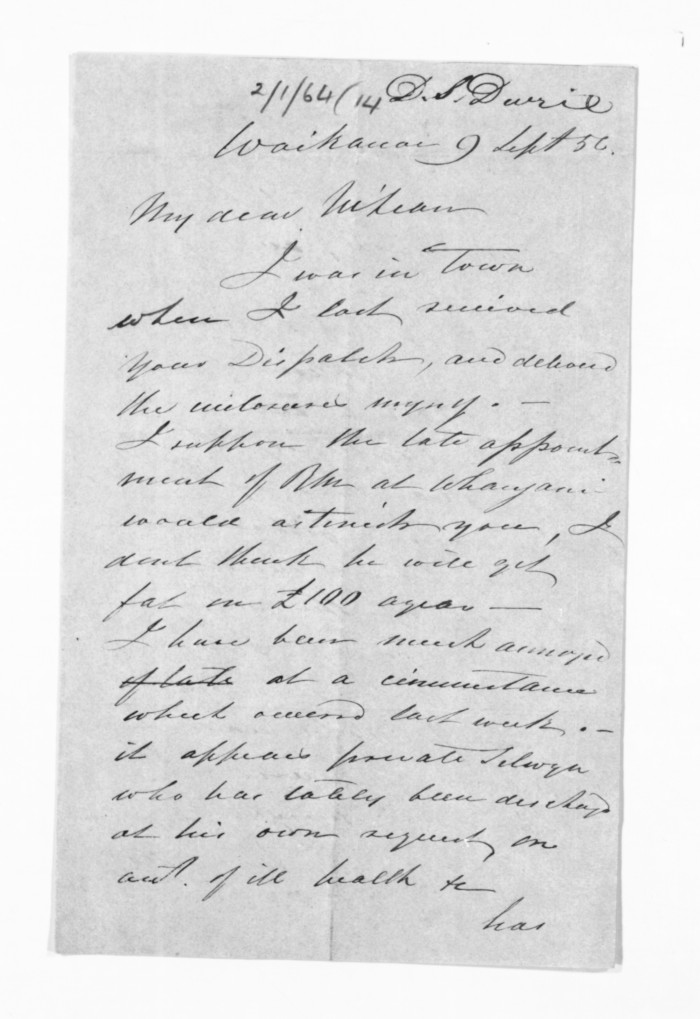 2/1/64 (14 D. S. Durie
Waikanae 9 Sept 56.
My dear McLean
I was in Town
when I last received
your Dispatch, and delivered
the enclosures myself. —
I suppose the late appoint=
ment of RM at Whanganui
would astonish you, I
dont think he will get
fat on £100 a year —
I have been much annoyed
of late at a circumstance
which occurred last week. —
it appears private Selwyn
who has lately been discharged
at his own request, on
acct. of ill health &c
has